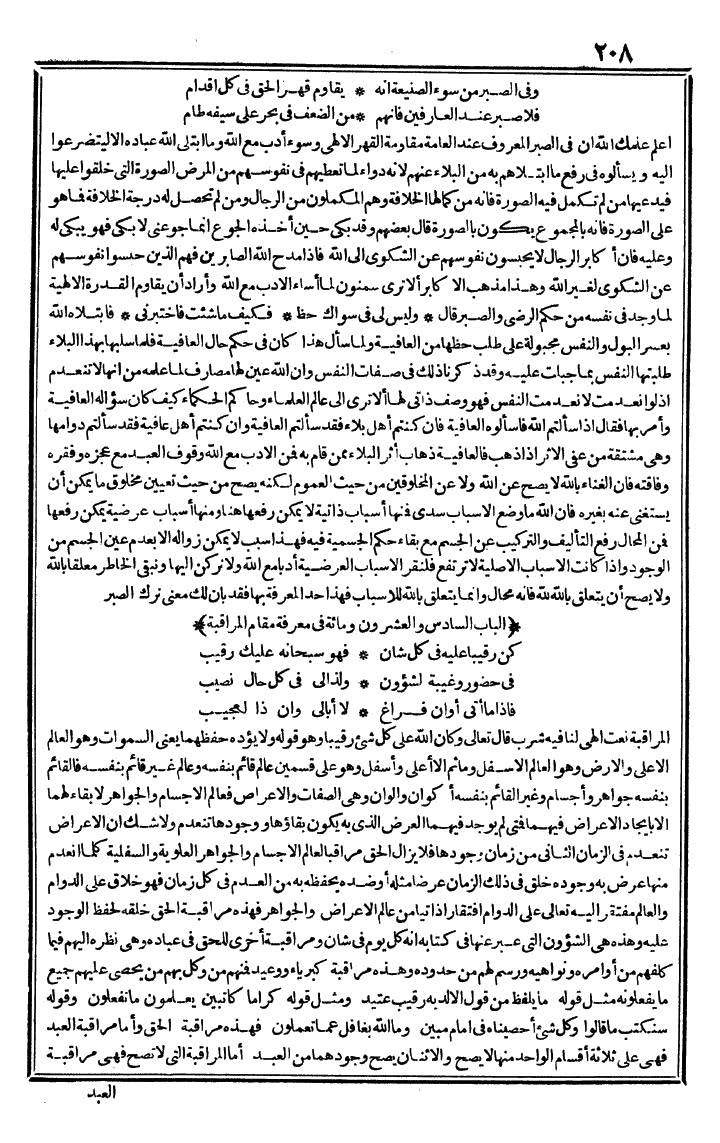 ٢٠٨
وفى الصبر من سوء الصنيعة انه * يقاوم قهر الحق فى كل اقدام
فلا صبر عند العارفين فانهم * من الضعف فى بحر على سيفه طام
اعلم علمك الله ان فى الصبر المعروف عند العامة مقاومة القهر الالهى وسوء أدب مع الله وما ابتلى الله عباده الا ليتضرعوا
اليه ويسألوه فى رفع ما ابتلاهم به من البلاء عنهم لانه دواء لما تعطيهم فى نفوسهم من المرض الصورة التى خلقوا عليها
فيدعيها من لم تكمل فيه الصورة فانه من كمالها الخلافة وهم المكملون من الرجال ومن لم تحصل له درجة الخلافة فما هو
على الصورة فانه بالمجموع يكون بالصورة قال بعضهم وقد بكى حين أخذه الجوع انما جوعنى لا بكى فهو يبكى له
وعليه فان أكابر الرجال لا يحبسون نفوسهم عن الشكوى الى الله فاذا مدح الله الصابرين فهم الذين حبسوا نفوسهم
عن الشكوى لغير الله وهذا مذهب الاكابر ألا ترى سمنون لما أساء الادب مع الله وأراد أن يقاوم القدرة الالهية
لما وجد فى نفسه من حكم الرضى والصبر قال * وليس لى فى سواك حظ * فكيف ما شئت فاختبرنى * فابتلاه الله
بعسر البول والنفس مجبولة على طلب حظها من العافية ولما سأل هذا كان فى حكم حال العافية فلما سلبها بهذا البلاء
طلبتها النفس بما جبلت عليه وقد ذكرنا ذلك فى صفات النفس وان الله عين لها مصارف لما علمه من انها لا تنعدم
اذ لو انعدمت لانعدمت النفس فهو وصف ذاتى لها ألا ترى الى عالم العلماء وحاكم الحكماء كيف كان سؤاله العافية
وأمر بها فقال اذا سألتم الله فاسألوه العافية فان كنتم أهل بلاء فقد سألتم العافية وان كنتم أهل عافية فقد سألتم دوامها
وهى مشتقة من عفى الاثر اذا ذهب فالعافية ذهاب أثر البلاء ممن قام به فمن الادب مع الله وقوف العبد مع عجزه وفقره
وفاقته فان الغناء بالله لا يصح عن الله ولا عن المخلوقين من حيث العموم لكنه يصح من حيث تعيين مخلوق ما يمكن أن
يستغنى عنه بغيره فان الله ما وضع الاسباب سدى فمنها أسباب ذاتية لا يمكن رفعها هنا ومنها أسباب عرضية يمكن رفعها
فمن المحال رفع التأليف والتركيب عن الجسم مع بقاء حكم الجسمية فيه فهذا سبب لا يمكن زواله الا بعدم عين الجسم من
الوجود واذا كانت الاسباب الاصلية لا ترتفع فلنقر الاسباب العرضية أدبا مع الله ولا نركن اليها ونبقى الخاطر معلقا بالله
ولا يصح أن يتعلق بالله لله فانه محال وانما يتعلق بالله للاسباب فهذا حد المعرفة بها فقد بان لك معنى ترك الصبر
﴿الباب السادس والعشرون ومائة فى معرفة مقام المراقبة﴾
كن رقيبا عليه فى كل شان * فهو سبحانه عليك رقيب
فى حضور وغيبة لشؤون * ولذا لى فى كل حال نصيب
فاذا ما أتى أوان فراغ * لا أبالى وان ذا لعجيب
المراقبة نعت الهى لنا فيه شرب قال تعالى وكان الله على كل شئ رقيبا وهو قوله ولا يؤده حفظهما يعنى السموات وهو العالم
الاعلى والارض وهو العالم الاسفل وما ثم الا أعلى وأسفل وهو على قسمين عالم قائم بنفسه وعالم غير قائم بنفسه فالقائم
بنفسه جواهر وأجسام وغير القائم بنفسه أكوان وألوان وهى الصفات والاعراض فعالم الاجسام والجواهر لا بقاء لهما
الا بايجاد الاعراض فيهما فمتى لم يوجد فيهما العرض الذى به يكون بقاؤها ووجودها تنعدم ولا شك ان الاعراض
تنعدم فى الزمان الثانى من زمان وجودها فلا يزال الحق مراقبا لعالم الاجسام والجواهر العلوية والسفلية كلما انعدم
منها عرض به وجوده خلق فى ذلك الزمان عرضا مثله أو ضده يحفظه به من العدم فى كل زمان فهو خلاق على الدوام
والعالم مفتقر اليه تعالى على الدوام افتقارا ذاتيا من عالم الاعراض والجواهر فهذه مراقبة الحق خلقه لحفظ الوجود
عليه وهذه هى الشؤون التى عبر عنها فى كتابه انه كل يوم فى شان ومراقبة أخرى للحق فى عباده وهى نظره اليهم فيما
كلفهم من أوامره ونواهيه ورسم لهم من حدوده وهذه مراقبة كبرياء ووعيد فمنهم من وكل بهم من يحصى عليهم جميع
ما يفعلونه مثل قوله ما يلفظ من قول الا لديه رقيب عتيد ومثل قوله كراما كاتبين يعلمون ما تفعلون وقوله
سنكتب ما قالوا وكل شئ أحصيناه فى امام مبين وما الله بغافل عما تعملون فهذه مراقبة الحق وأما مراقبة العبد
فهى على ثلاثة أقسام الواحد منها لا يصح والاثنان يصح وجودهما من العبد أما المراقبة التى لا تصح فهى مراقبة
العبد